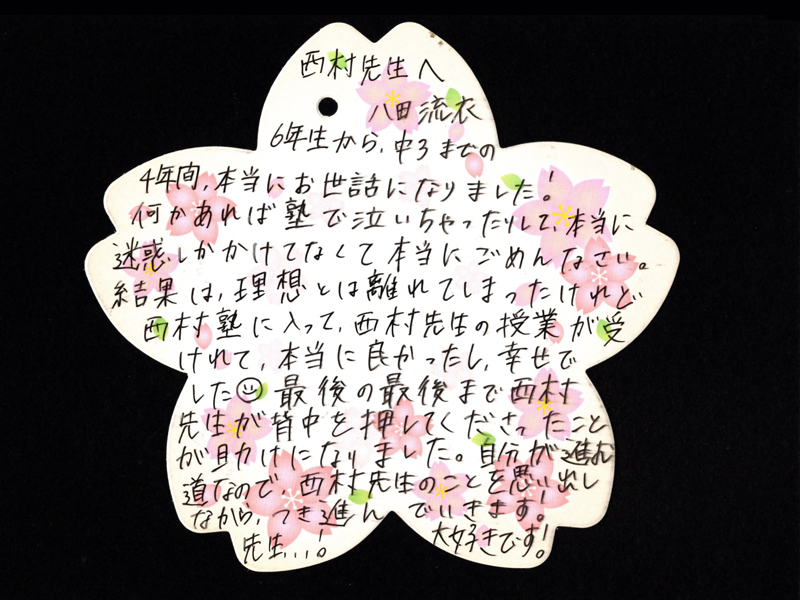 西村先生へ
八田流衣
6年生から、中3までの
4年間、本当にお世話になりました!
何かあれば塾で泣いちゃったりして、本当に
迷惑しかかけてなくて本当にごめんなさい。
結果は、理想とは離れてしまったけれど
西村塾に入って、西村先生の授業が受
けれて、本当に良かったし、幸せで
した☺ 最後の最後まで西村
先生が背中を押してくださったこと
が助けになりました。自分が進む
道なので、西村先生のことを思い出し
ながら、つき進んでいきます!
先生...! 大好きです!